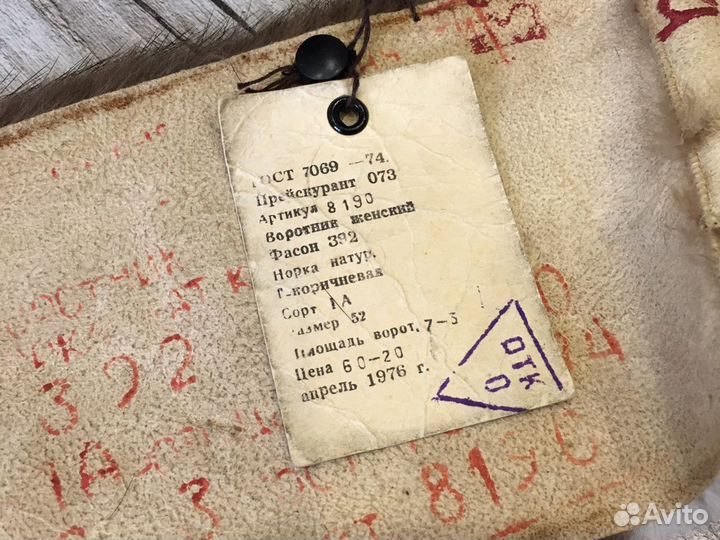 ГОСТ 7069 —74.
Прейскурант 073
Артикул 8190
Воротник женский
Фасон 392
Норка натур.
Т-коричневая
Сорт 1А
Размер 52
Площадь ворот. 7-3
Цена 60-20
апрель 1976 г.
ОТК
0
392
1А
3
8190
Avito